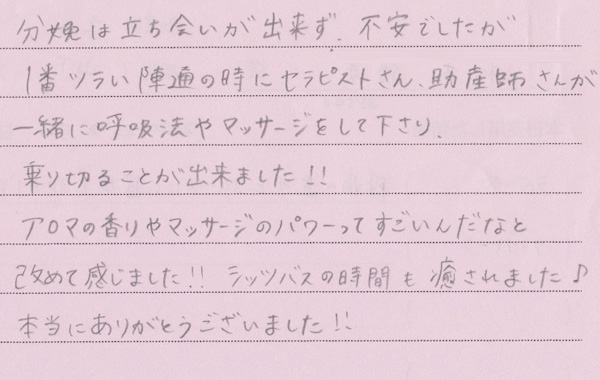 分娩は立ち会いが出来ず、不安でしたが
1番ツラい陣通の時にセラピストさん、助産師さんが
一緒に呼吸法やマッサージをして下さり、
乗り切ることが出来ました!!
アロマの香りやマッサージのパワーってすごいんだなと
改めて感じました!! シッツバスの時間も癒されました♪
本当にありがとうございました!!